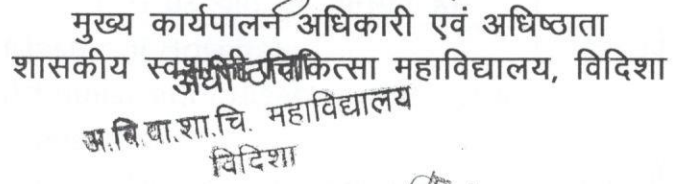 मुख्य कार्यपालन अधिकारी एवं अधिष्ठाता
शासकीय स्वशासी चिकित्सा महाविद्यालय, विदिशा
अधिष्ठाता
अ.बि.वा.शा.चि. महाविद्यालय
विदिशा